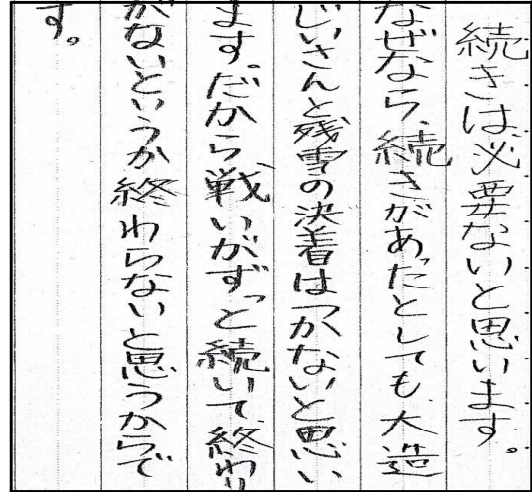 続きは、必要ないと思います。
なぜなら、続きがあったとしても、大造
じいさんと残雪の決着はつかないと思い
ます。だから戦いがずっと続いて、終わり
がないというか終わらないと思うからで
す。